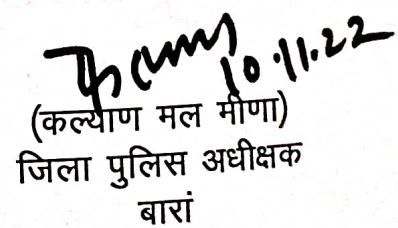 10.11.22
(कल्याण मल मीणा)
जिला पुलिस अधीक्षक
बारां